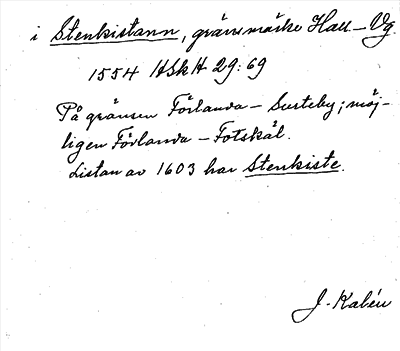 i Stenkistann, gränsmärke Hall–Vg.
1554 HSkH 29:69
På gränsen Förlanda – Surteby; möj-
ligen Förlanda – Fotskäl.
Listan av 1603 har Stenkiste.
J. Kalén